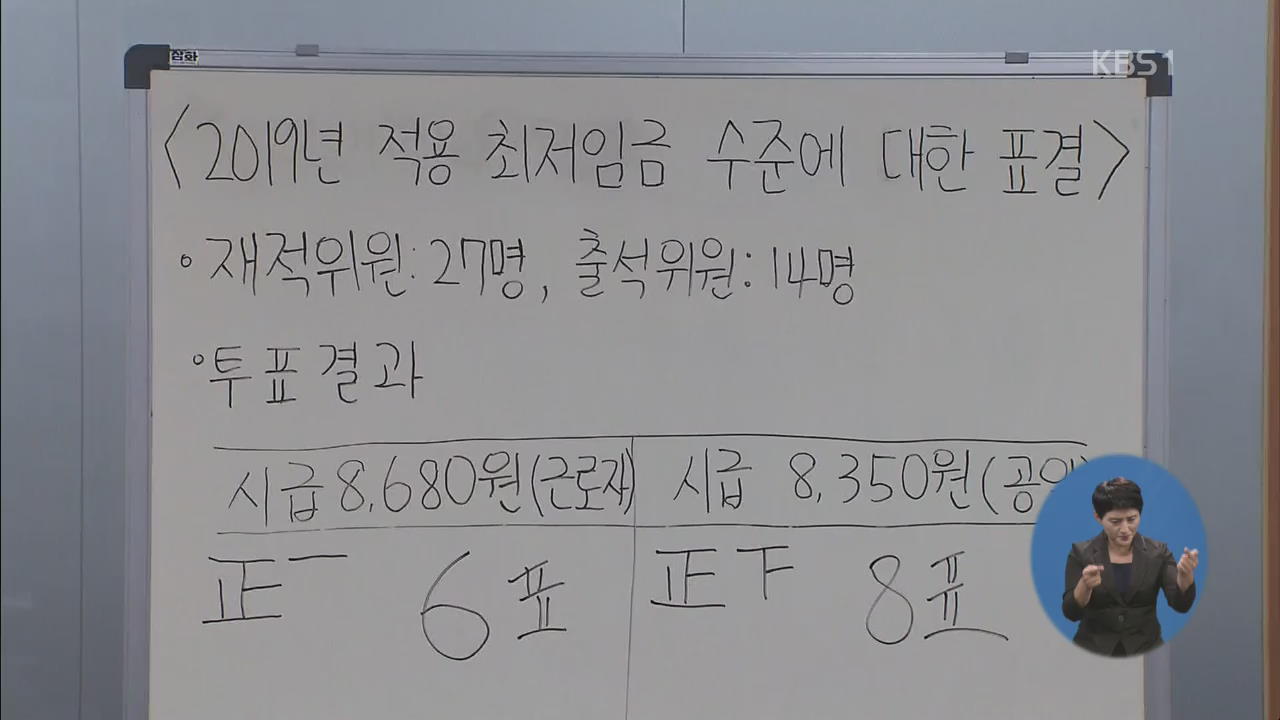 삼화
KBS1
<2019년 적용 최저임금 수준에 대한 표결>
• 재적위원: 27명, 출석위원: 14명
• 투표결과
시급 8,680원(근로자) 시급 8,350원(공익)
正一 6표 正下 8표